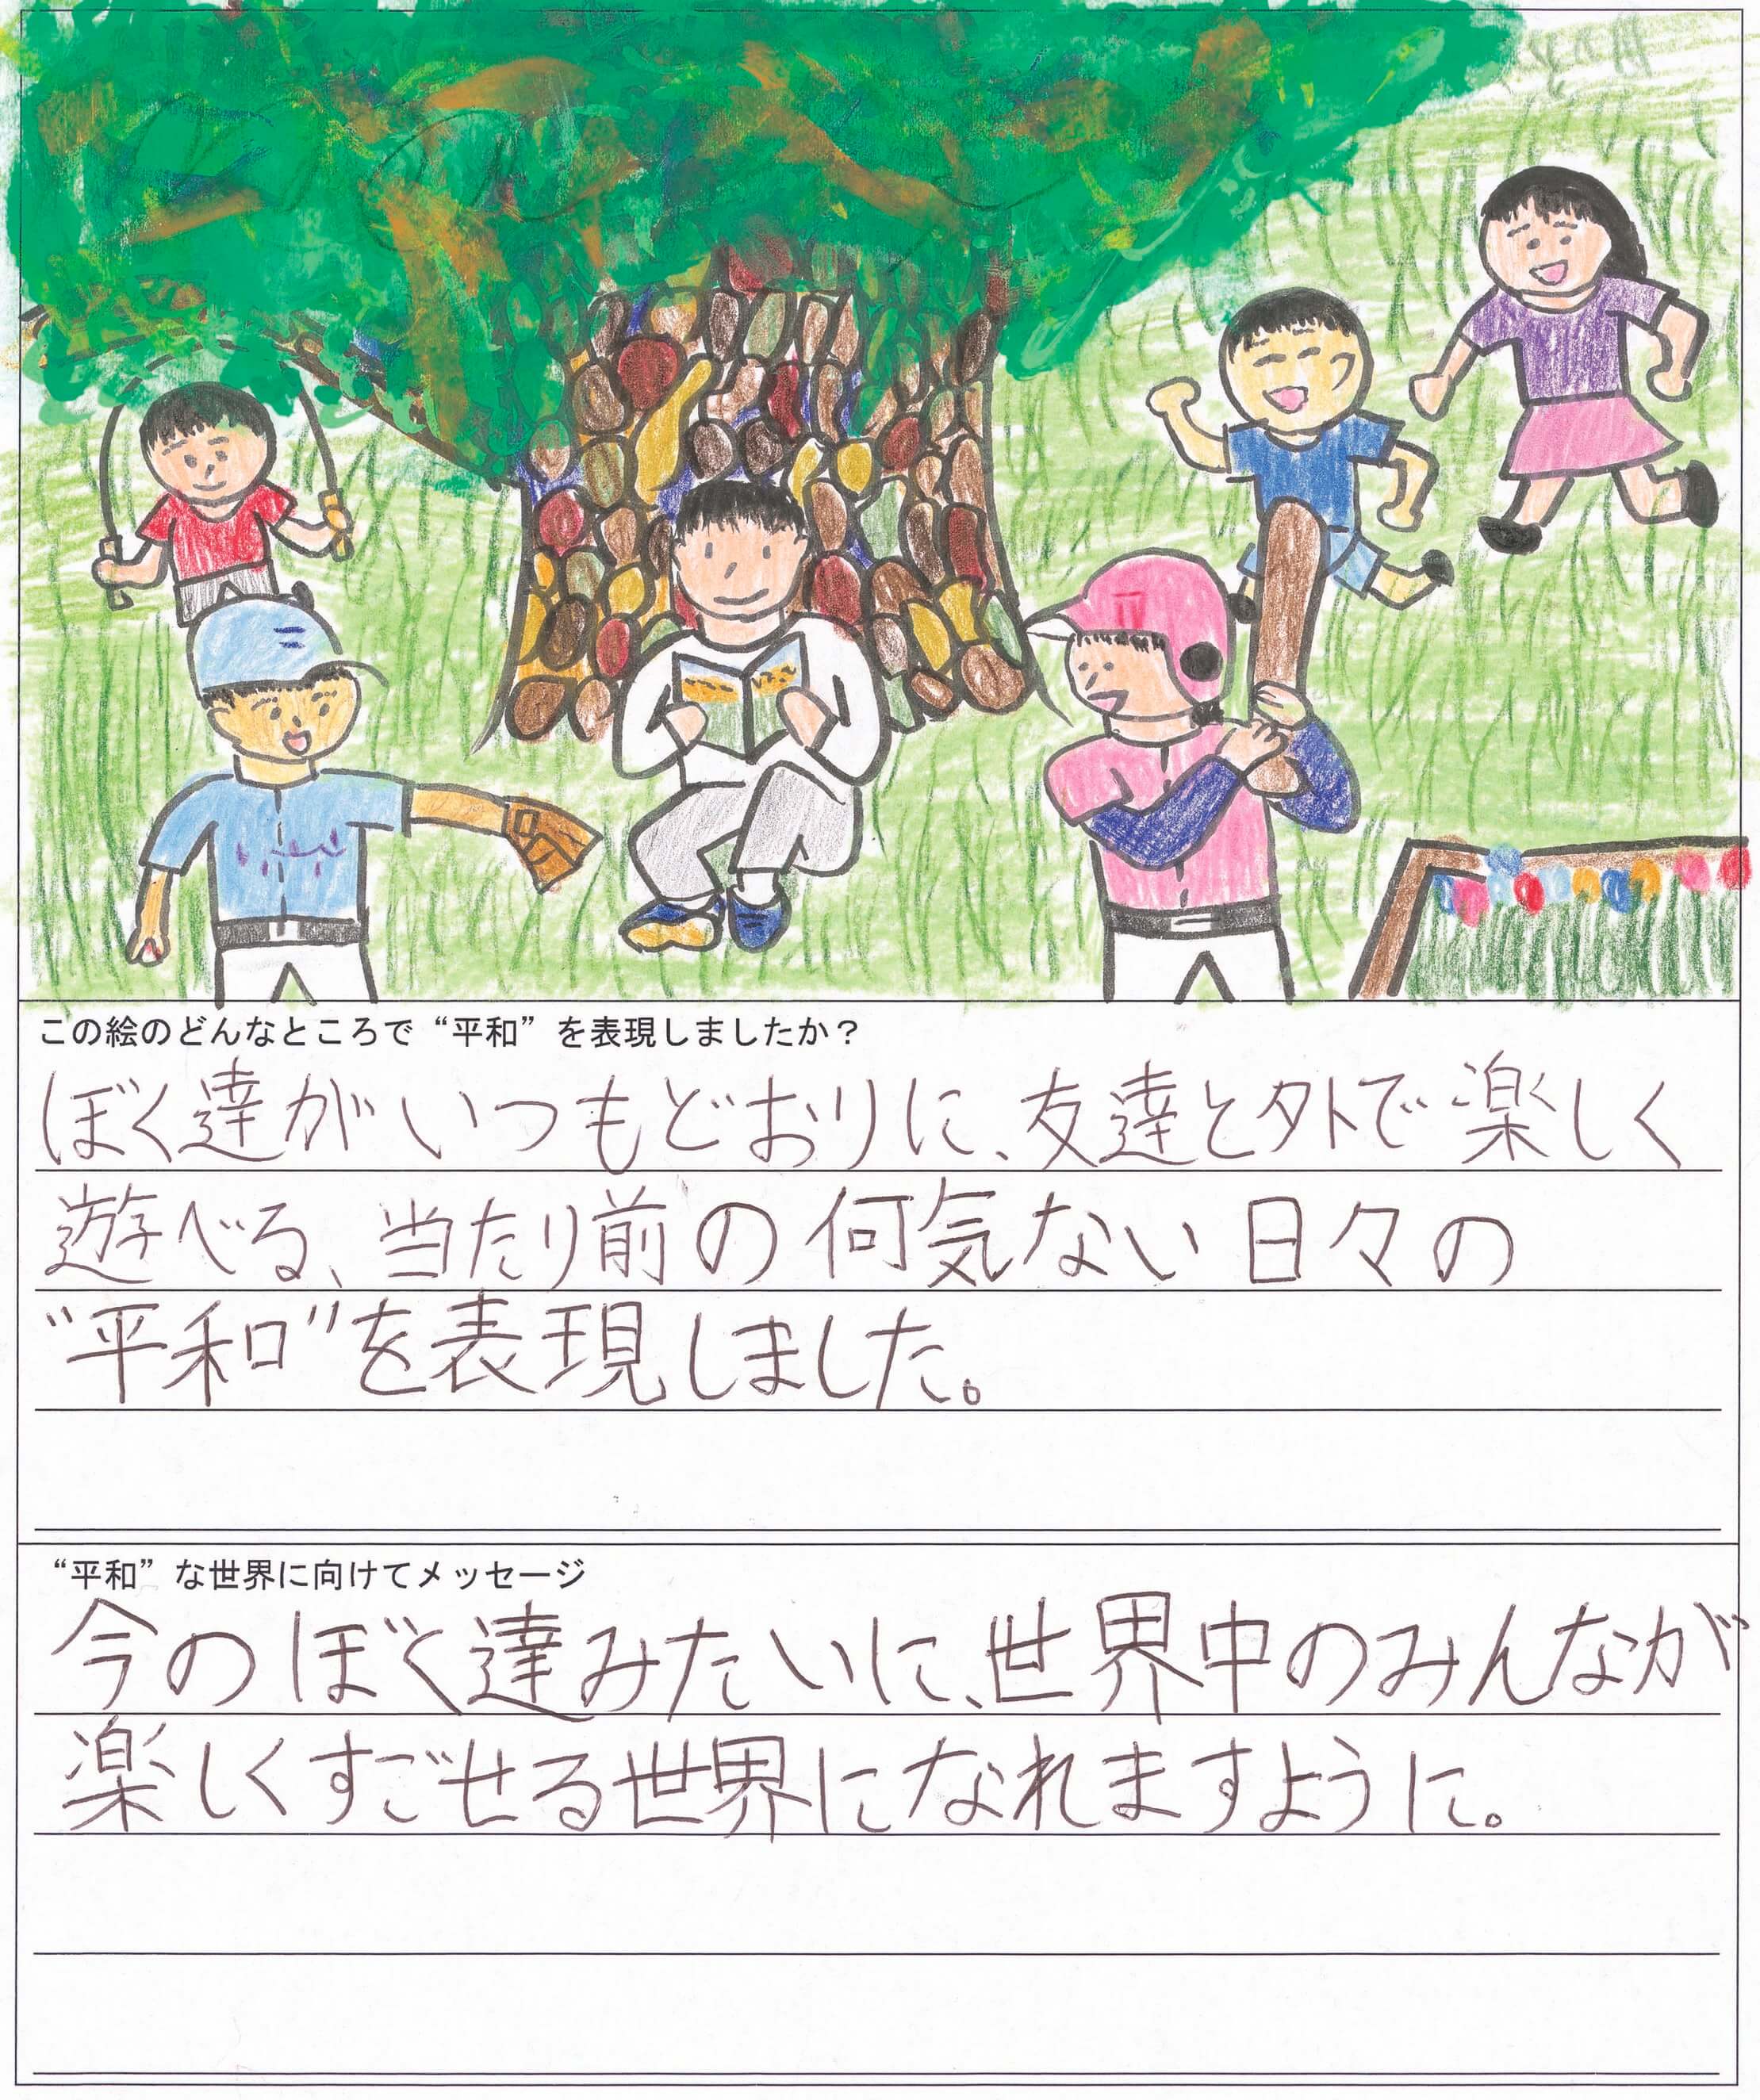 この絵のどんなところで“平和”を表現しましたか？
ぼく達がいつもどおりに、友達と外で楽しく
遊べる、当たり前の何気ない日々の
“平和”を表現しました。
“平和”な世界に向けてメッセージ
今のぼく達みたいに、世界中のみんなが
楽しくすごせる世界になれますように。